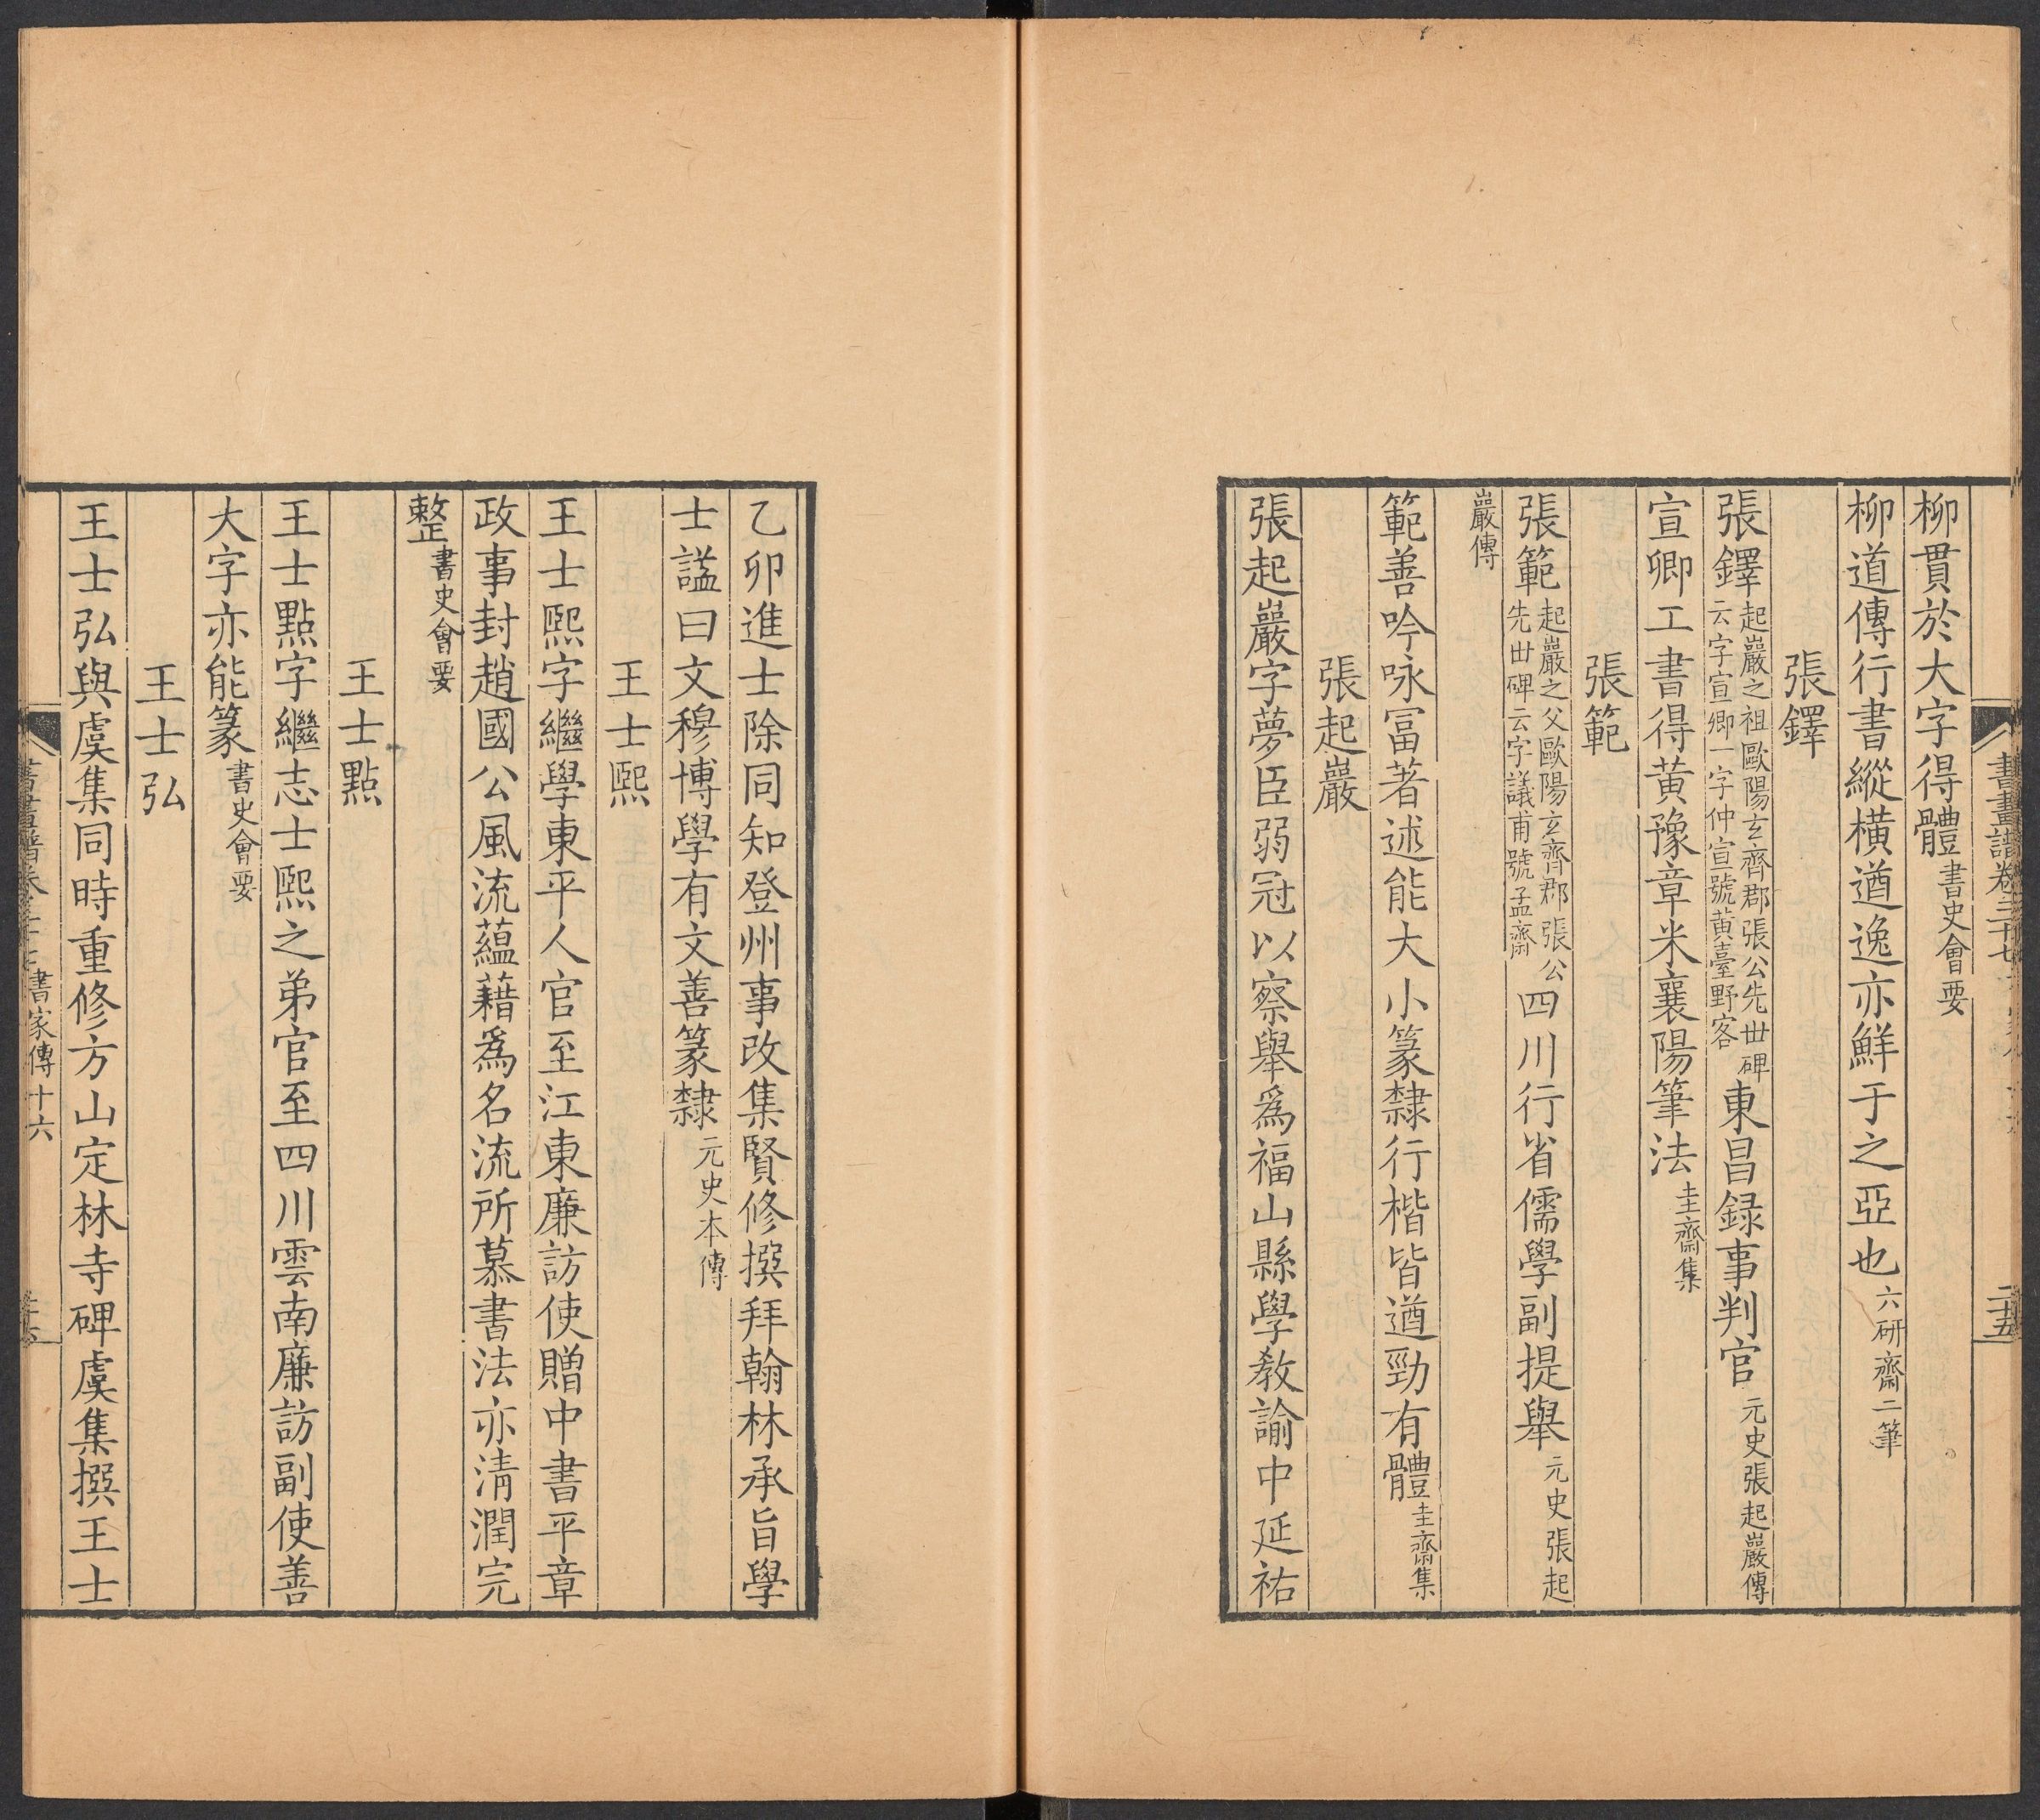 書畫譜卷三十七
二五
柳貫於大字得體書史會要
柳道傳行書縱橫遒逸亦鮮于之亞也六研齋二筆
張鐸
張鐸起巖之祖歐陽玄齊郡張公先世碑云字宣卿一字仲宣號黃臺野客東昌録事判官元史張起巖傳
宣卿工書得黃豫章米襄陽筆法圭齋集
張範
張範起巖之父歐陽玄齊郡張公先世碑云字議甫號孟齋四川行省儒學副提舉元史張起
巖傳
範善吟咏冨著述能大小篆隸行楷皆遒勁有體圭齋集
張起巖
張起巖字夢臣弱冠以察舉為福山縣學教諭中延祐
乙卯進士除同知登州事改集賢修撰拜翰林承旨學
士諡曰文穆博學有文善篆隸元史本傳
王士熙
王士熙字繼學東平人官至江東廉訪使贈中書平章
政事封趙國公風流蘊藉為名流所慕書法亦清潤完
整書史會要
王士點
王士點字繼志士熙之弟官至四川雲南廉訪副使善
大字亦能篆書史會要
王士弘
王士弘與虞集同時重修方山定林寺碑虞集撰王士
書畫譜卷三十七 書家傳十六